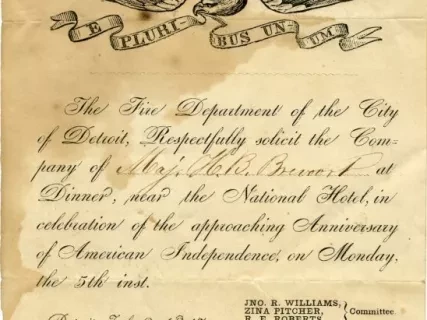 E PLURIBUS UNUM
The Fire Department of the City
of Detroit, Respectfully solicit the Com-
pany of Maj. H. B. Brevoort at
Dinner, near the National Hotel, in
celebration of the approaching Anniversary
of American Independence, on Monday,
the 5th inst.
JNO. R. WILLIAMS,
ZINA PITCHER,
R. E. ROBERTS
Committee